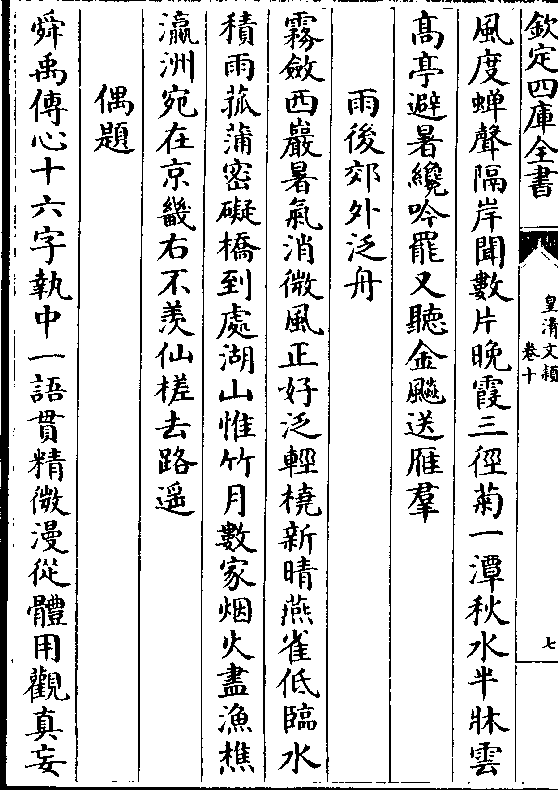 欽定四庫全書
皇清文穎
卷十
七
風度蟬聲隔岸聞數片晚霞三徑菊一潭秋水半牀雲
髙亭避暑纔吟罷又聽金飈送雁羣
雨後郊外泛舟
霧斂西巖暑氣消微風正好泛輕橈新晴燕雀低臨水
積雨菰蒲密礙橋到處湖山惟竹月數家烟火盡漁樵
瀛洲宛在京畿右不羡仙槎去路遥
偶題
舜禹傳心十六字執中一語貫精微漫從體用觀真妄